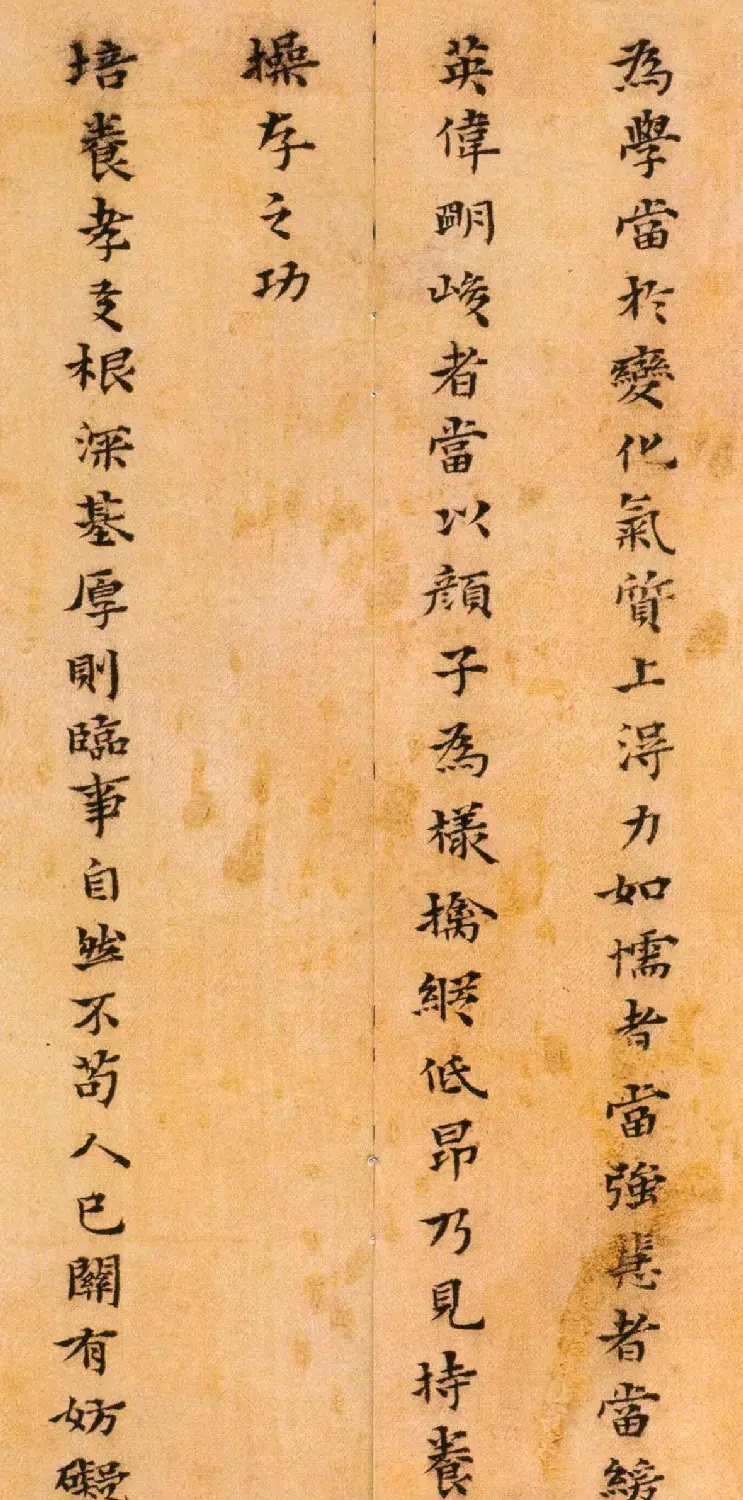 為學當於變化氣質上淂力如懦者當強者當緩
英偉明峻者當以顏子為樣擒縱低昂乃見持養
操存之功
培養孝友根深基厚則臨事自然不苟人己關有妨礙